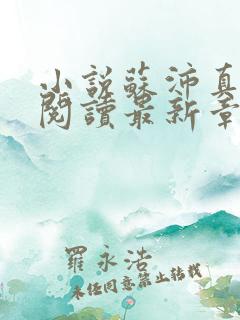 小說蘇沛真
閱讀最新章
羅永浩
未經同意禁止转载